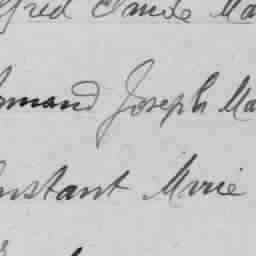 lfred Claude Ma
rmand Joseph Ma
nstant Marie